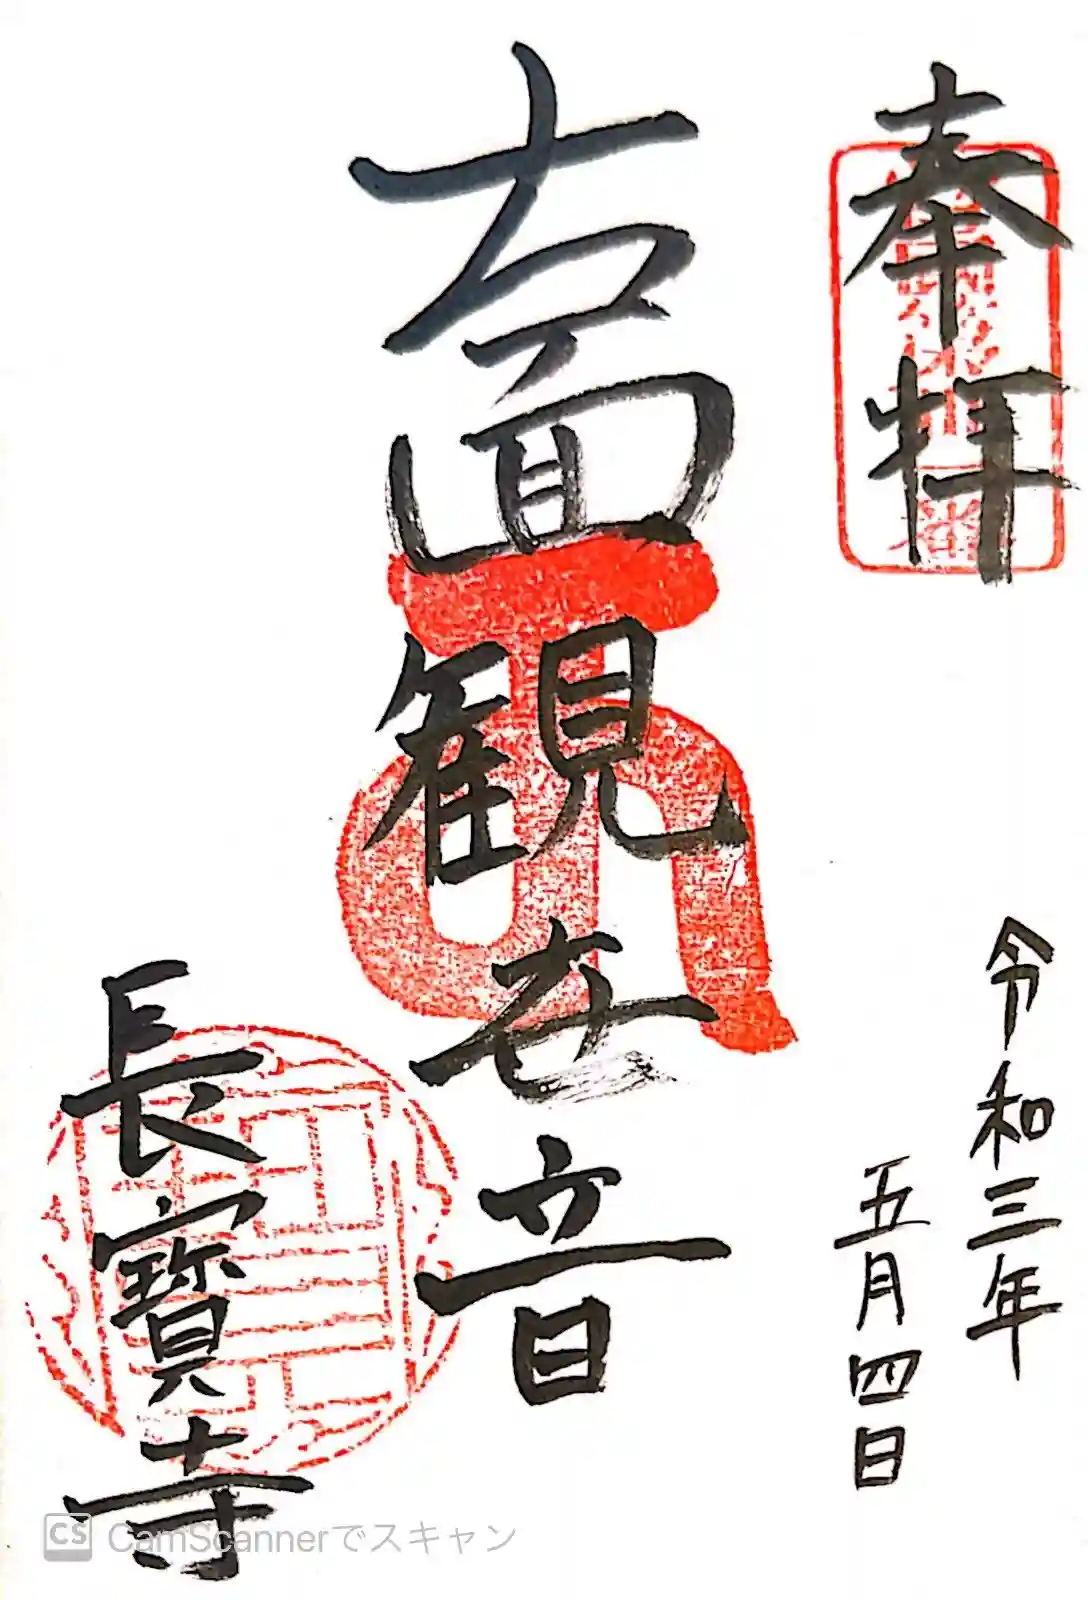 奉拝
令和三年
五月四日
十一面観世音
長寳寺
CamScannerでスキャン